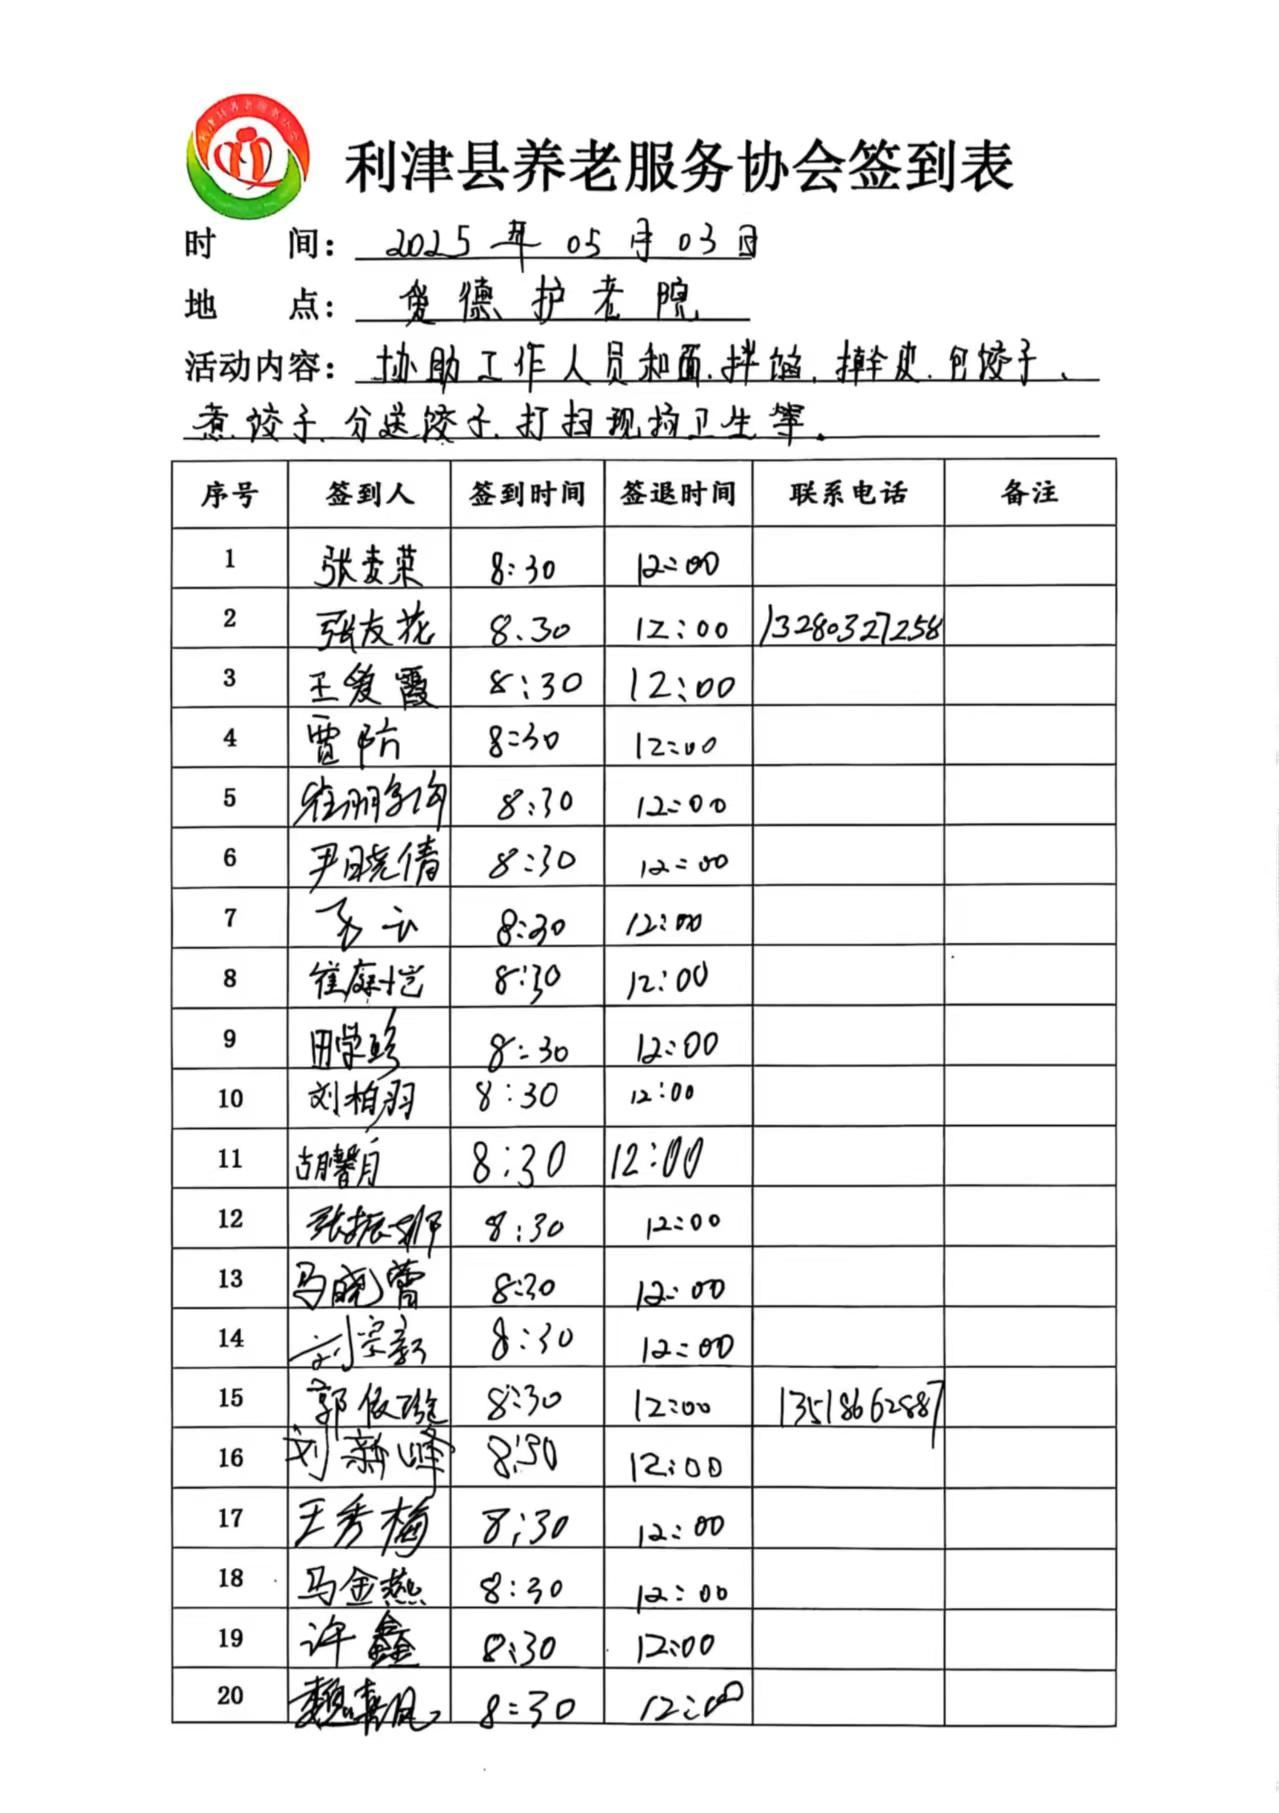 利津县养老服务协会签到表
时 间: 2025年05月03日
地 点: 爱德护老院
活动内容: 协助工作人员和面、拌馅、擀皮、包饺子、
煮饺子、分送饺子、打扫现场卫生等。
序号 签到人 签到时间 签退时间 联系电话 备注
1 张麦荣 8:30 12:00
2 张友花 8.30 12:00 13280327258
3 王爱霞 8:30 12:00
4 贾防 8:30 12:00
5 8:30 12:00
6 尹晓倩 8:30 12:00
7 8:30 12:00
8 崔庭恺 8:30 12:00
9 田学珍 8:30 12:00
10 刘柏羽 8:30 12:00
11 胡馨月 8:30 12:00
12 张振 8:30 12:00
13 马晓蕾 8:30 12:00
14 刘宗彩 8:30 12:00
15 郭依璇 8:30 12:00 13518662887
16 刘新峰 8:30 12:00
17 王秀梅 8:30 12:00
18 马金燕 8:30 12:00
19 许鑫 8:30 12:00
20 魏春凤 8:30 12:00